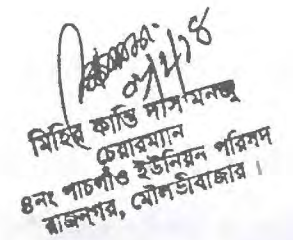 মিহির কান্তি দাস মনজু
চেয়ারম্যান
৪নং পাচগাঁও ইউনিয়ন পরিষদ
রাজনগর, মৌলভীবাজার।